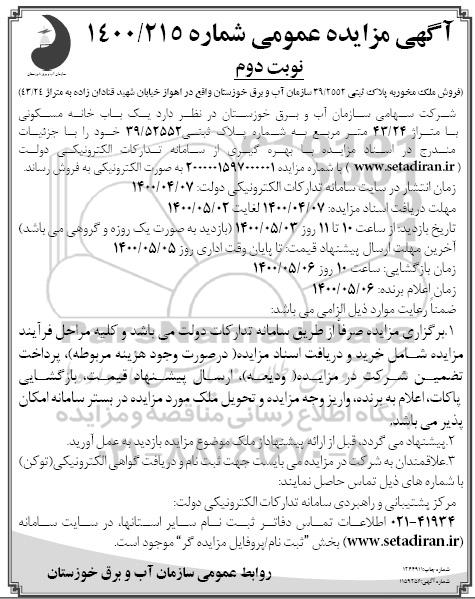 سازمان آب و برق خوزستان
آگهی مزایده عمومی شماره ۱۴۰۰/۲۱۵
نوبت دوم
(فروش ملک مخروبه پلاک ثبتی ۳۹/۲۵۵۲ سازمان آب و برق خوزستان واقع در اهواز خیابان شهید قنادان زاده به متراژ ۴۳/۲۴)
شرکت سهامی سازمان آب و برق خوزستان در نظر دارد یک باب خانه مسکونی
با متراژ ۴۳/۲۴ متر مربع به شماره پلاک ثبتی ۳۹/۵۲۵۵۲ خود را با جزئیات
مندرج در اسناد مزایده با بهره گیری از سامانه تدارکات الکترونیکی دولت
(www.setadiran.ir) با شماره مزایده ۲۰۰۰۰۰۱۵۹۷۰۰۰۰۰۱ به صورت الکترونیکی به فروش رساند.
زمان انتشار در سایت سامانه تدارکات الکترونیکی دولت: ۱۴۰۰/۰۴/۰۷
مهلت دریافت اسناد مزایده: ۱۴۰۰/۰۴/۰۷ لغایت ۱۴۰۰/۰۵/۰۲
تاریخ بازدید: از ساعت ۱۰ تا ۱۱ روز ۱۴۰۰/۰۵/۰۳ (بازدید به صورت یک روزه و گروهی می باشد)
آخرین مهلت ارسال پیشنهاد قیمت: تا پایان وقت اداری روز ۱۴۰۰/۰۵/۰۵
زمان بازگشایی: ساعت ۱۰ روز ۱۴۰۰/۰۵/۰۶
زمان اعلام برنده: ۱۴۰۰/۰۵/۰۶
ضمناً رعایت موارد ذیل الزامی می باشد:
۱.برگزاری مزایده صرفاً از طریق سامانه تدارکات دولت می باشد و کلیه مراحل فرآیند
مزایده شامل خرید و دریافت اسناد مزایده( درصورت وجود هزینه مربوطه)، پرداخت
تضمین شرکت در مزایده( ودیعه)، ارسال پیشنهاد قیمت، بازگشایی
پاکات، اعلام به برنده، واریز وجه مزایده و تحویل ملک مورد مزایده در بستر سامانه امکان
پذیر می باشد.
۲.پیشنهاد می گردد، قبل از ارائه پیشنهاد از ملک موضوع مزایده بازدید به عمل آورید.
۳.علاقمندان به شرکت در مزایده می بایست جهت ثبت نام و دریافت گواهی الکترونیکی(توکن)
با شماره های ذیل تماس حاصل نمایند:
مرکز پشتیبانی و راهبردی سامانه تدارکات الکترونیکی دولت:
۰۲۱-۴۱۹۳۴ اطلاعات تماس دفاتر ثبت نام سایر استانها، در سایت سامانه
(www.setadiran.ir) بخش "ثبت نام/پروفایل مزایده گر" موجود است.
شماره چاپ:۱۲۶۴۹۱۱
شماره آگهی:۱۱۵۹۲۵۶
روابط عمومی سازمان آب و برق خوزستان
پایگاه اطلاع رسانی مناقصه و مزایده
۰۲۱-۸۸۳۴۹۶۷۰-۵